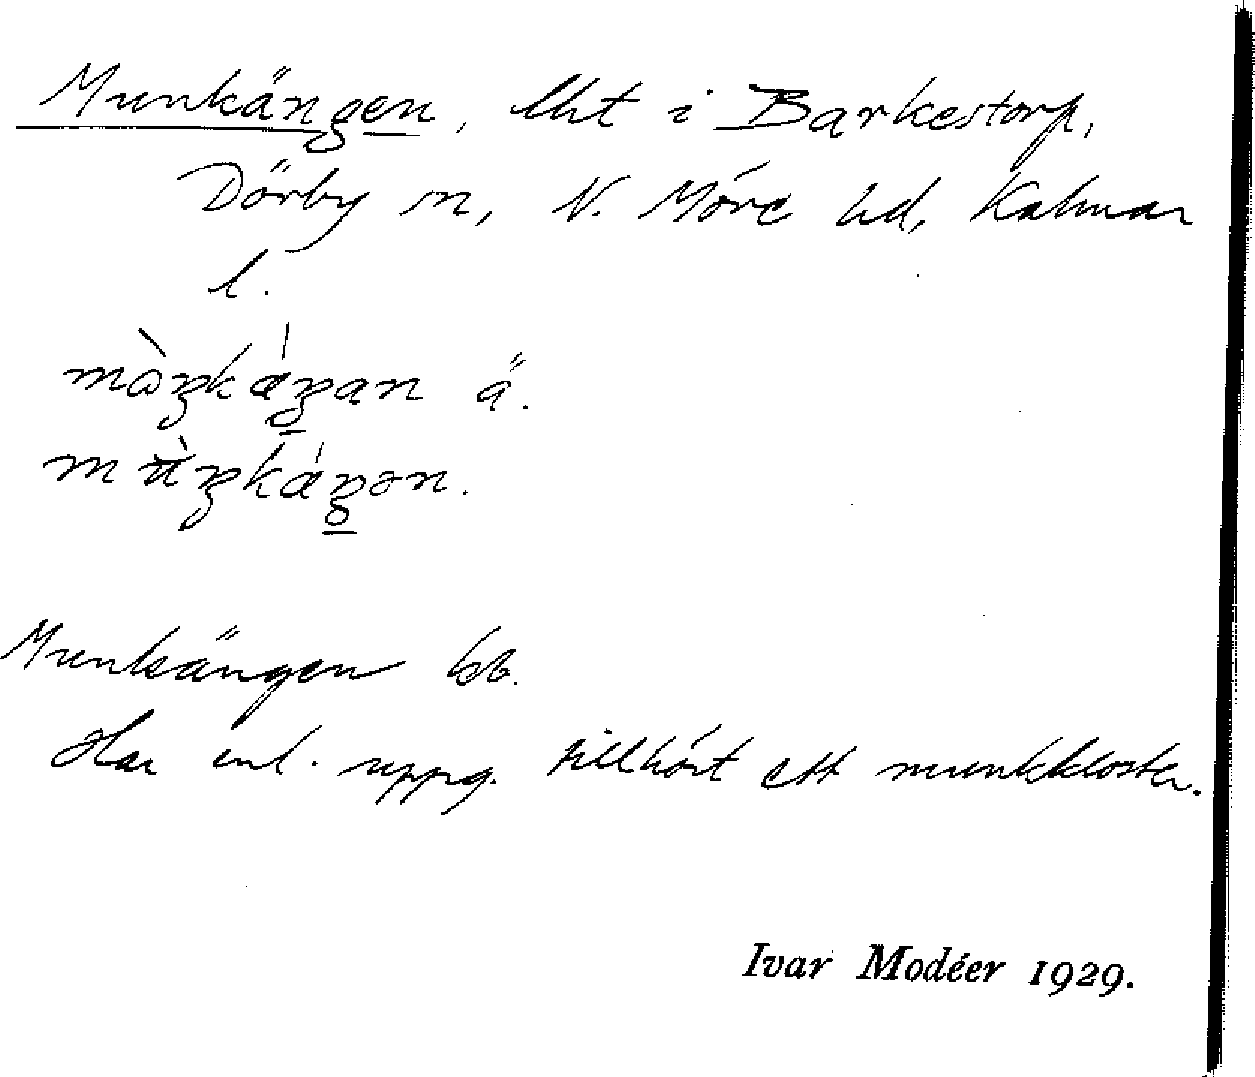 Munkängen, lht i Barkestorp,
Dörby sn, N. Möre hd, Kalmar
l.
mɷ̀ŋkáŋan ä.
mʉ̀ŋkáŋən.
Munkängen kb.
Har enl. uppg. tillhört ett munkkloster.
Ivar Modéer 1929.